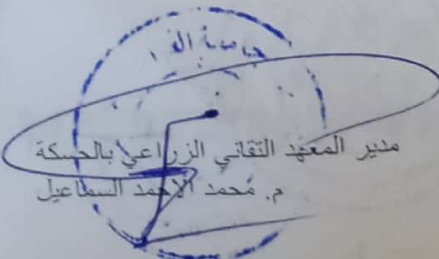 جامعة
مدير المعهد التقاني الزراعي بالحسكة
م. محمد الاحمد السماعيل